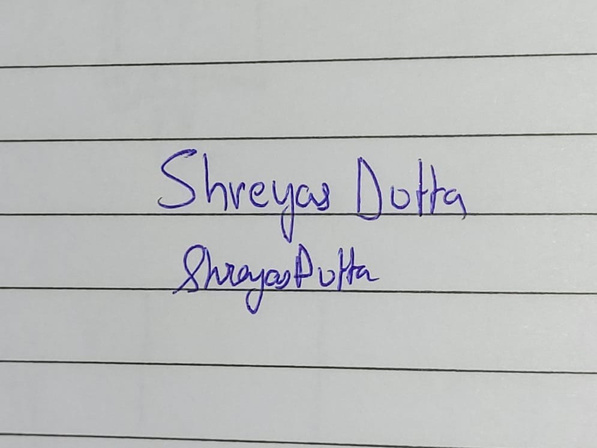 Shreyas Dutta
Shreyas Dutta